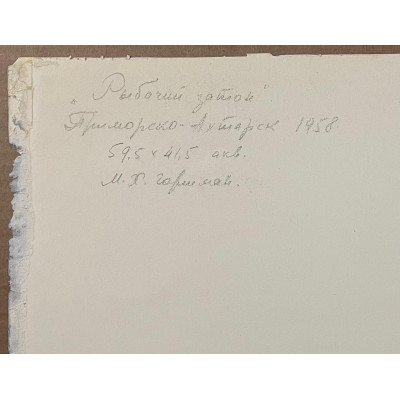 "Рыбачий затон".
Приморско-Ахтарск 1958.
59,5 x 41,5 акв.
М. Х. Горшман.